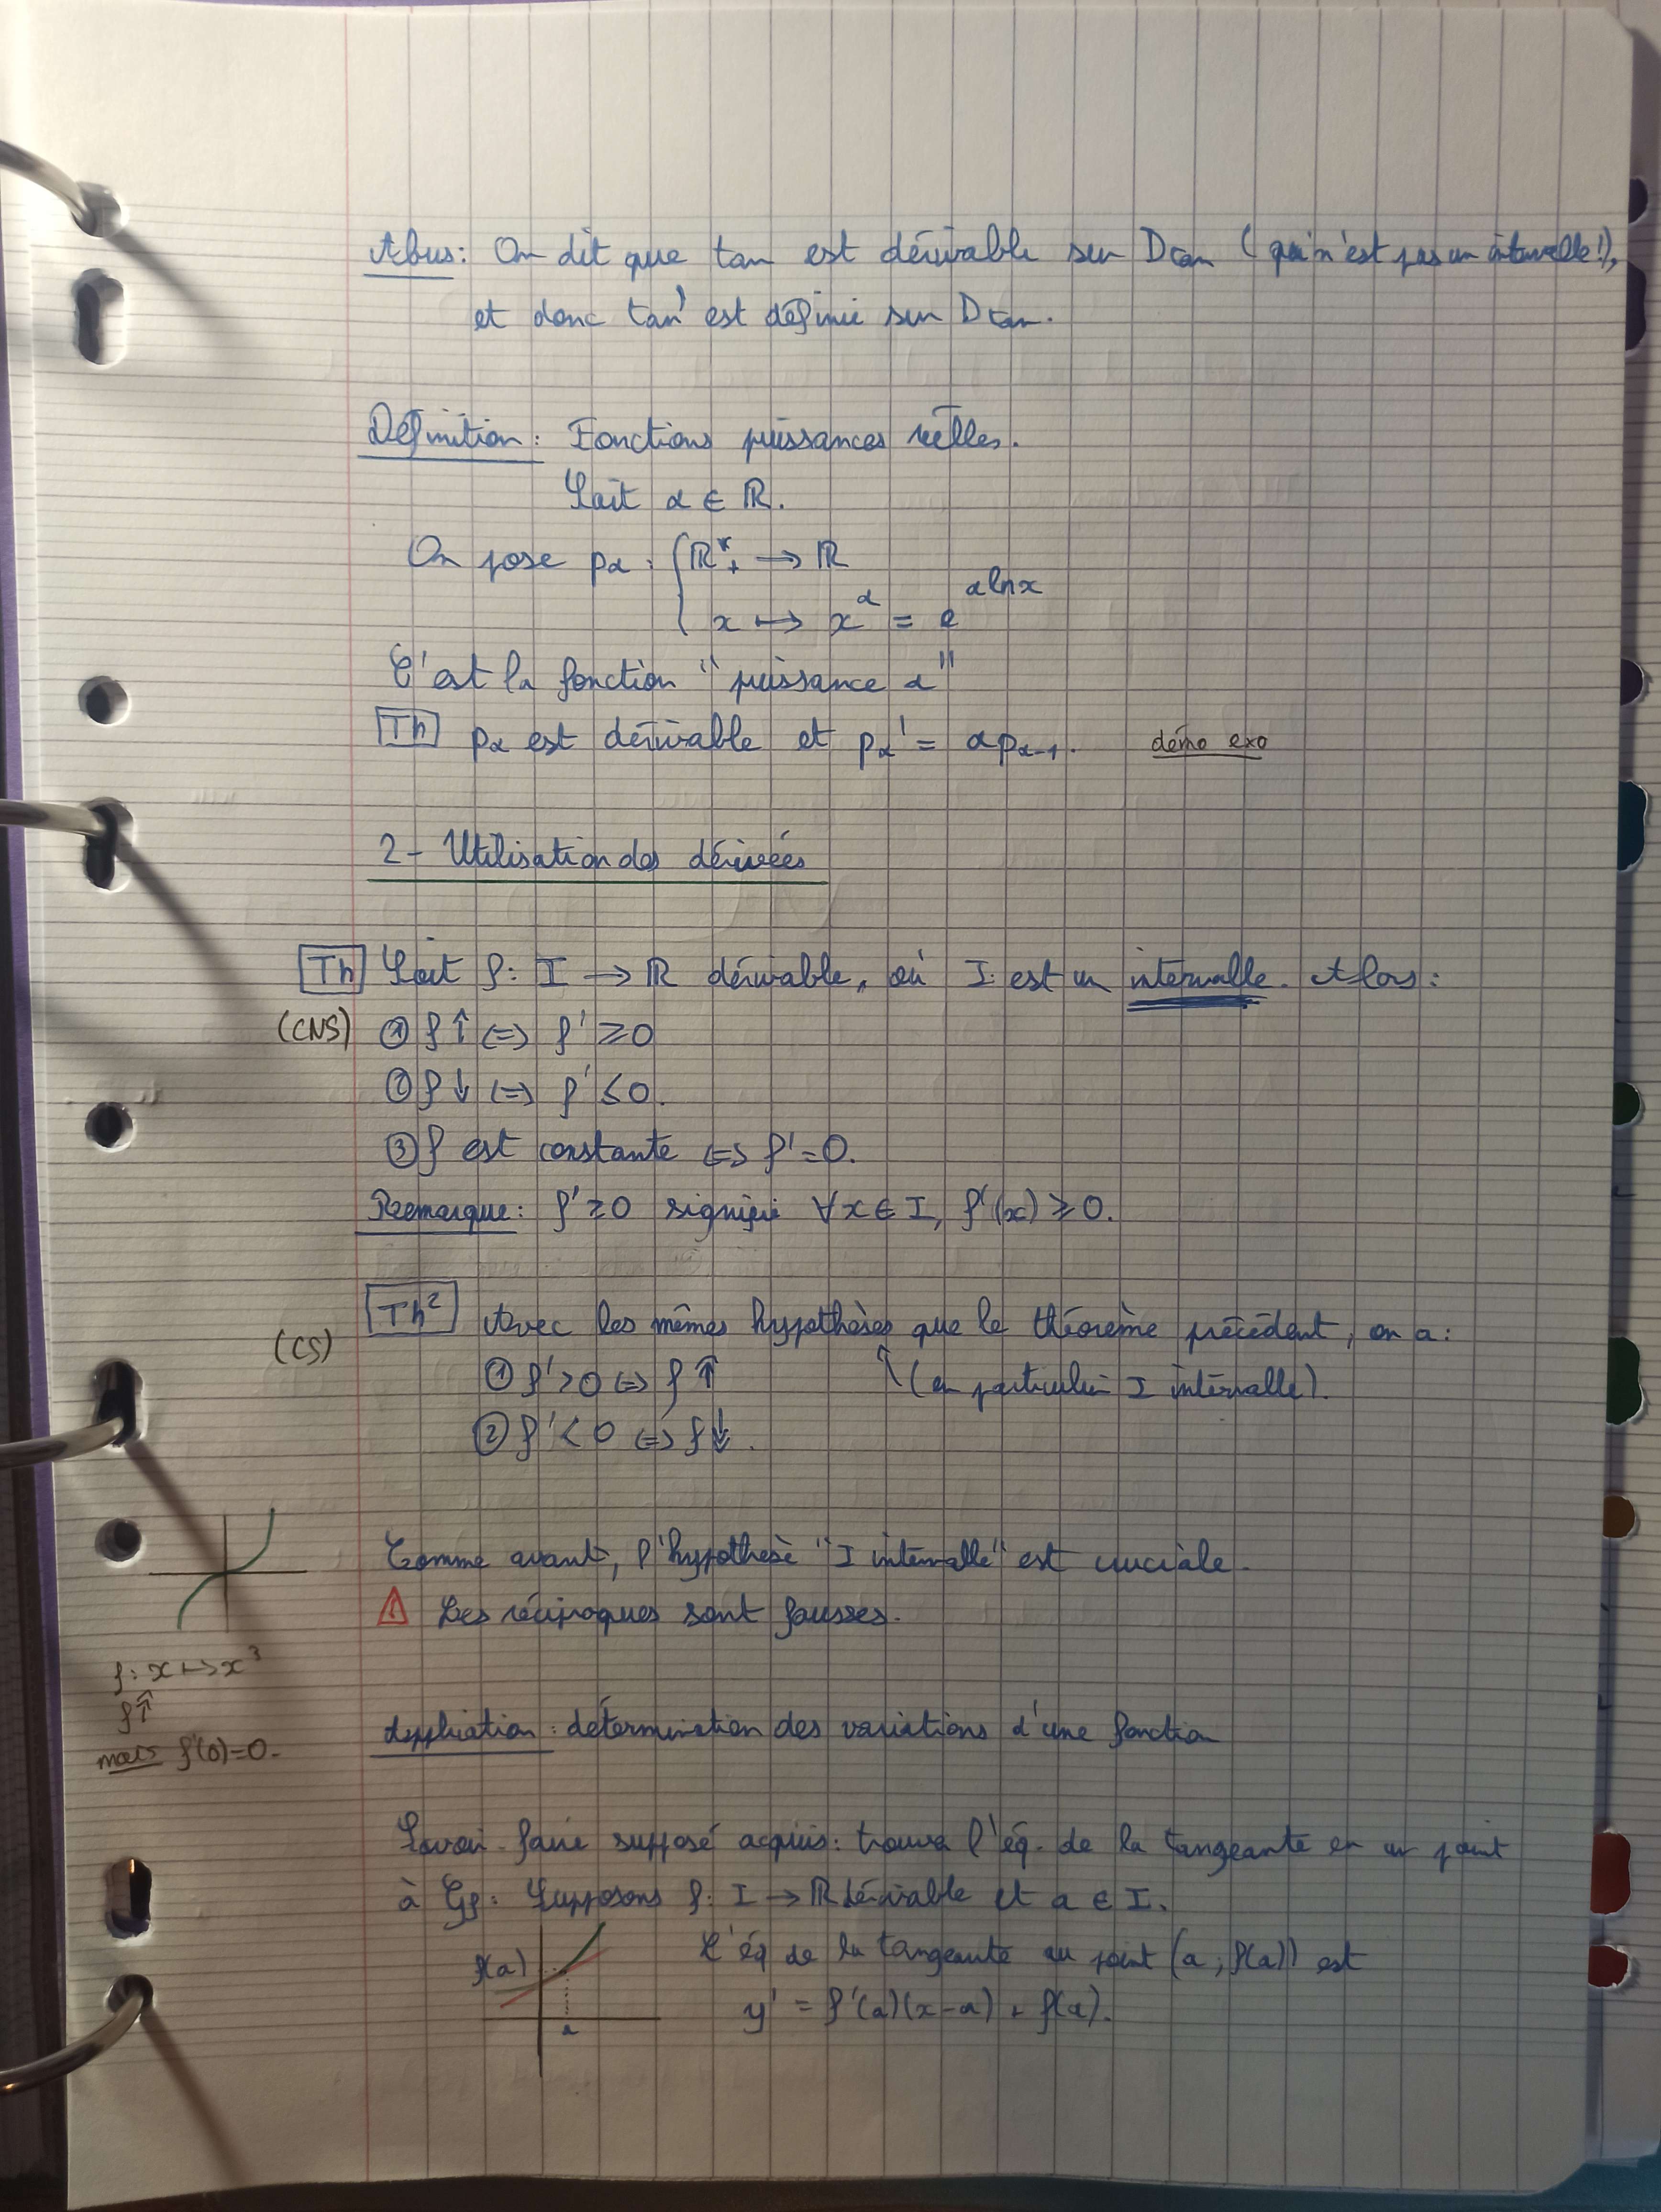 Abus : On dit que tan est dérivable sur Dtan (qui n'est pas un intervalle !),
et donc tan' est définie sur Dtan.
Définition : Fonctions puissances réelles.
Soit α ∈ ℝ.
On pose pα : { ℝ*+ → ℝ
x ↦ x^α = e^(α ln x)
C'est la fonction "puissance α"
Th pα est dérivable et pα' = α pα-1. démo exo
2 - Utilisation des dérivées
Th Soit f : I → ℝ dérivable, où I est un intervalle. Alors :
(CNS) ① f ↑ ⇔ f' ⩾ 0
② f ↓ ⇔ f' ⩽ 0.
③ f est constante ⇔ f' = 0.
Remarque : f' ⩾ 0 signifie ∀x ∈ I, f'(x) ⩾ 0.
Th² Avec les mêmes hypothèses que le théorème précédent, on a :
(CS)
① f' > 0 ⇔ f ⇑ (en particulier I intervalle).
② f' < 0 ⇔ f ⇓.
Comme avant, l'hypothèse "I intervalle" est cruciale.
⚠ Les réciproques sont fausses.
f : x ↦ x³
f ⇑
mais f'(0) = 0.
Application : détermination des variations d'une fonction
Savoir-faire supposé acquis : trouver l'éq. de la tangeante en un point
à Cf : Supposons f : I → ℝ dérivable et a ∈ I.
f(a)
a
L'éq de la tangeante au point (a ; f(a)) est
y' = f'(a)(x-a) + f(a).